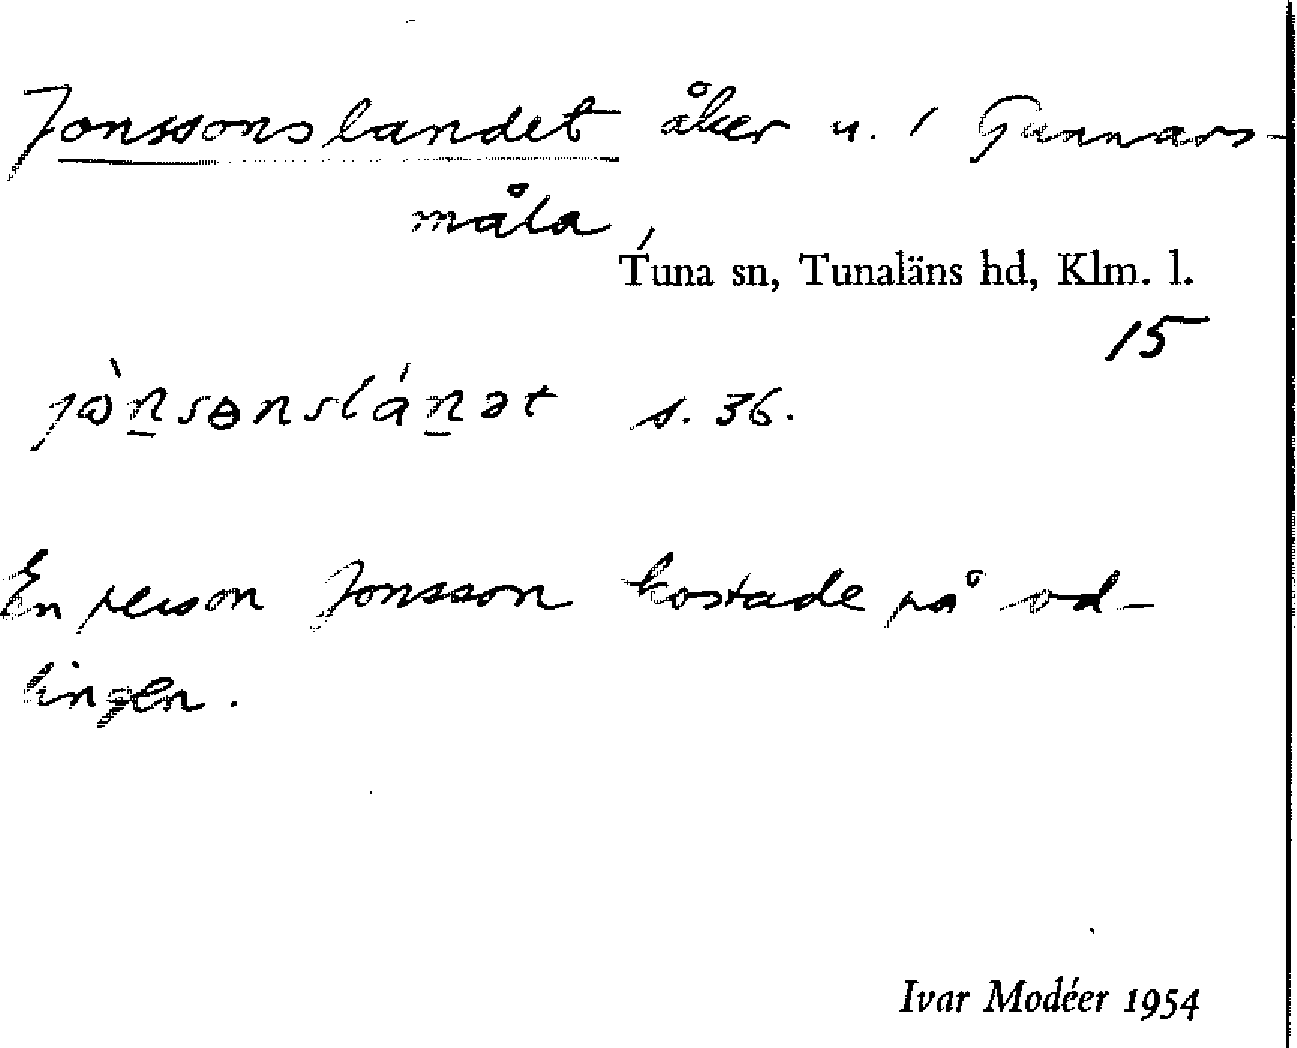 Jonssonslandet åker u. / Gunnars-
måla,
Tuna sn, Tunaläns hd, Klm. l.
15
s. 36.
En person Jonsson kostade på od-
lingen.
Ivar Modéer 1954